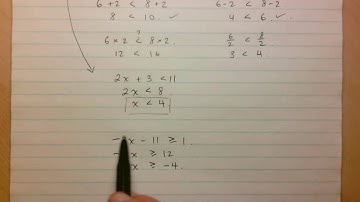 6 + 2 < 8 + 2
8 < 10 . ✓
6 - 2 < 8 - 2
4 < 6 . ✓
6 × 2 < 8 × 2 .
12 < 16
6/2 < 8/2
3 < 4
2x + 3 < 11
2x < 8 .
x < 4
x - 11 ≥ 1 .
x ≥ 12
x ≥ -4 .